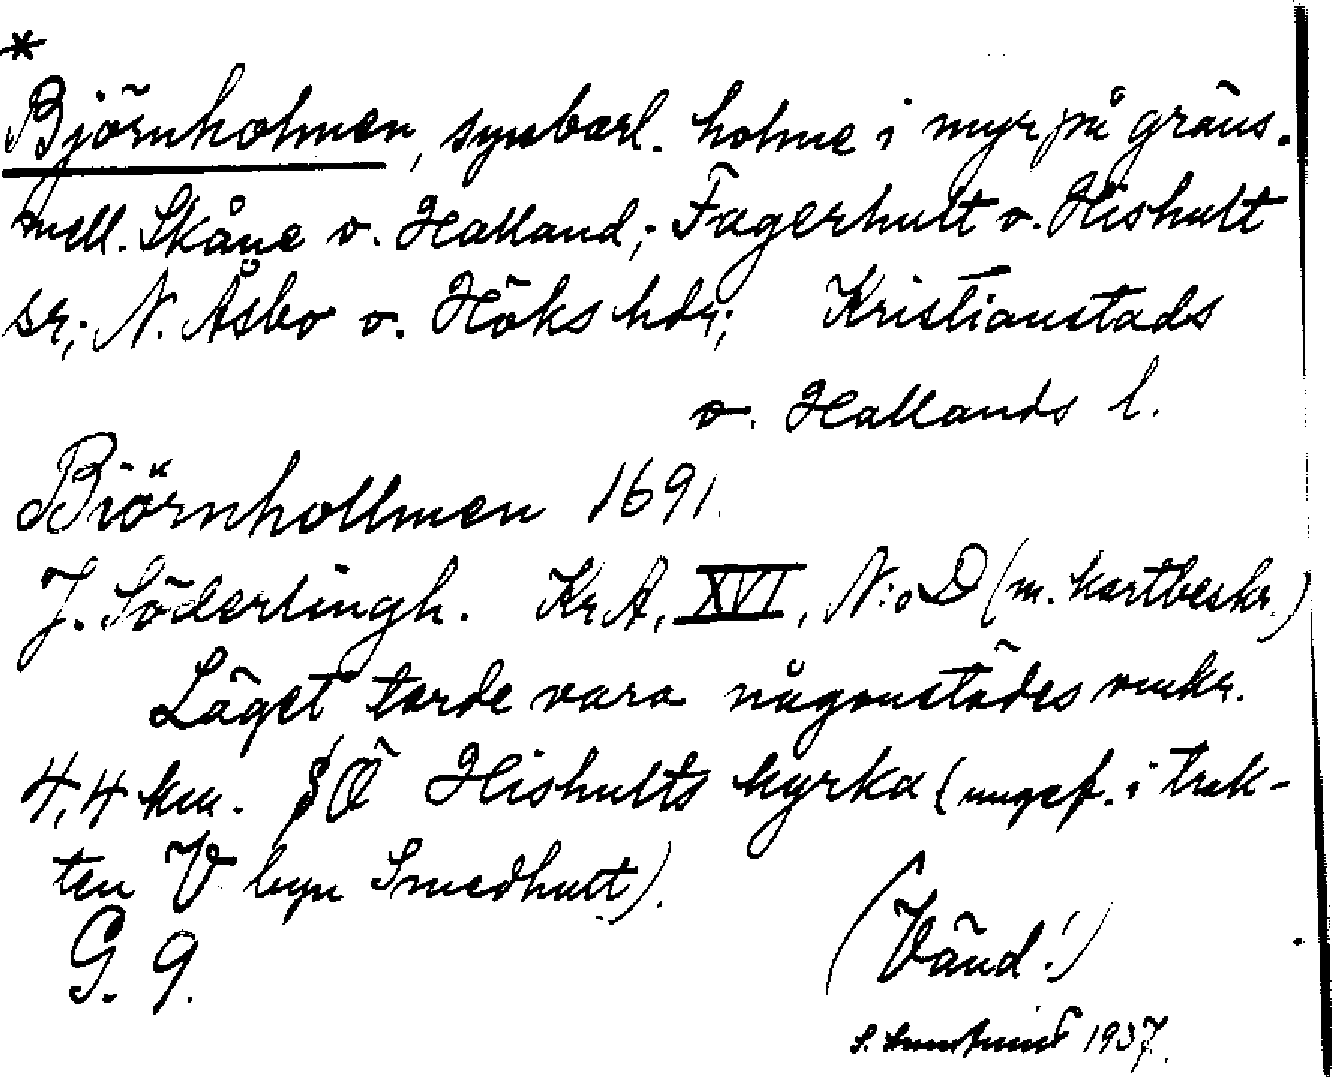 *
Björnholmen, synbarl. holme i myr på gräns.
mell. Skåne o. Halland; Fagerhult o. Hishult
sr; N. Åsbo o. Höks hdr; Kristianstads
o. Hallands l.
Biörnhollmen 1691.
J. Söderlingh. Kr. A, XVI, N:o D (m. kartbeskr.)
Läget torde vara någonstädes omkr.
4,4 km. SÖ Hishults kyrka (ungef. i trak-
ten V byn Smedhult).
G. 9.
(Vänd!)
S. 1937.